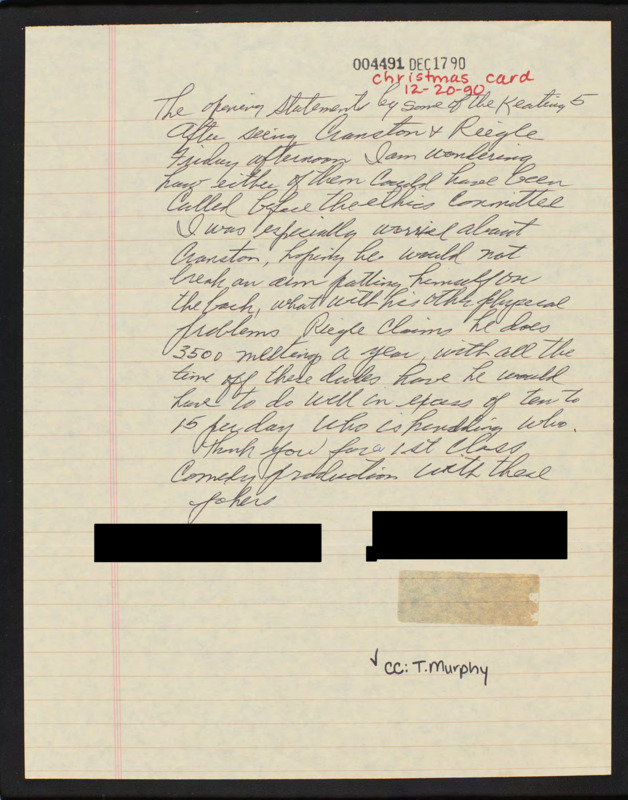 004491 DEC 17 90
christmas card
12-20-90
The opening Statements by some of the Keating 5
After seeing Cranston & Riegle
Friday afternoon I am wondering
how either of them could have been
Called before the ethics Committee
I was especially worried about
Cranston, hoping he would not
break an arm patting himself on
the back, what with his other physical
problems Riegle Claims he does
3500 meeting a year, with all the
time off these dudes have he would
have to do well in excess of ten to
15 per day Who is kidding who.
Thank you for a 1st Class
Comedy production with these
jokers
✓ CC: T. Murphy